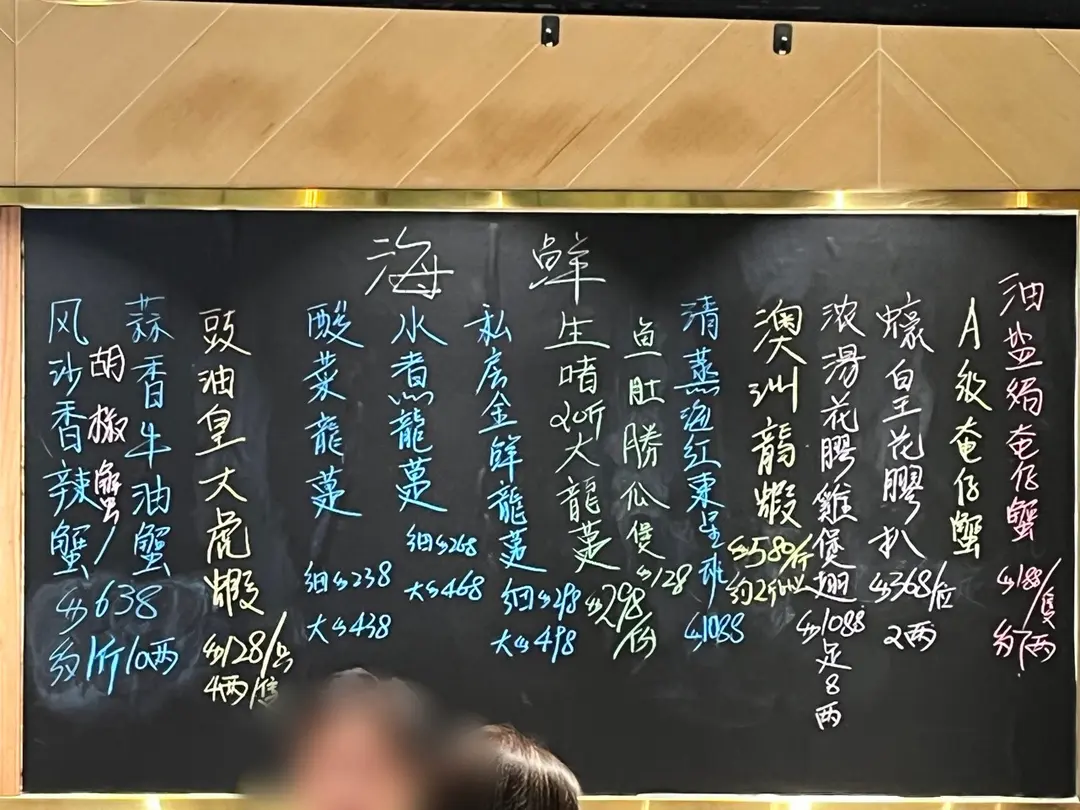 海鮮
油盐焗奄仔蟹
$188/隻
约7两
A级奄仔蟹
蠔皇花膠扒
$368/位
2两
浓湯花膠雞煲翅
$1088
足8两
澳洲龍蝦
$580/斤
约2斤以上
清蒸海红東星班
$1088
鱼肚勝瓜煲
$128
生啫2斤大龍躉
$298/份
私房金鲜龍躉
细$298
大$498
水煮龍躉
细$268
大$468
酸菜龍躉
细$238
大$438
豉油皇大虎蝦
$128/只
4两/隻
蒜香牛油蟹
胡椒蟹/
风沙香辣蟹
$638
约1斤10两